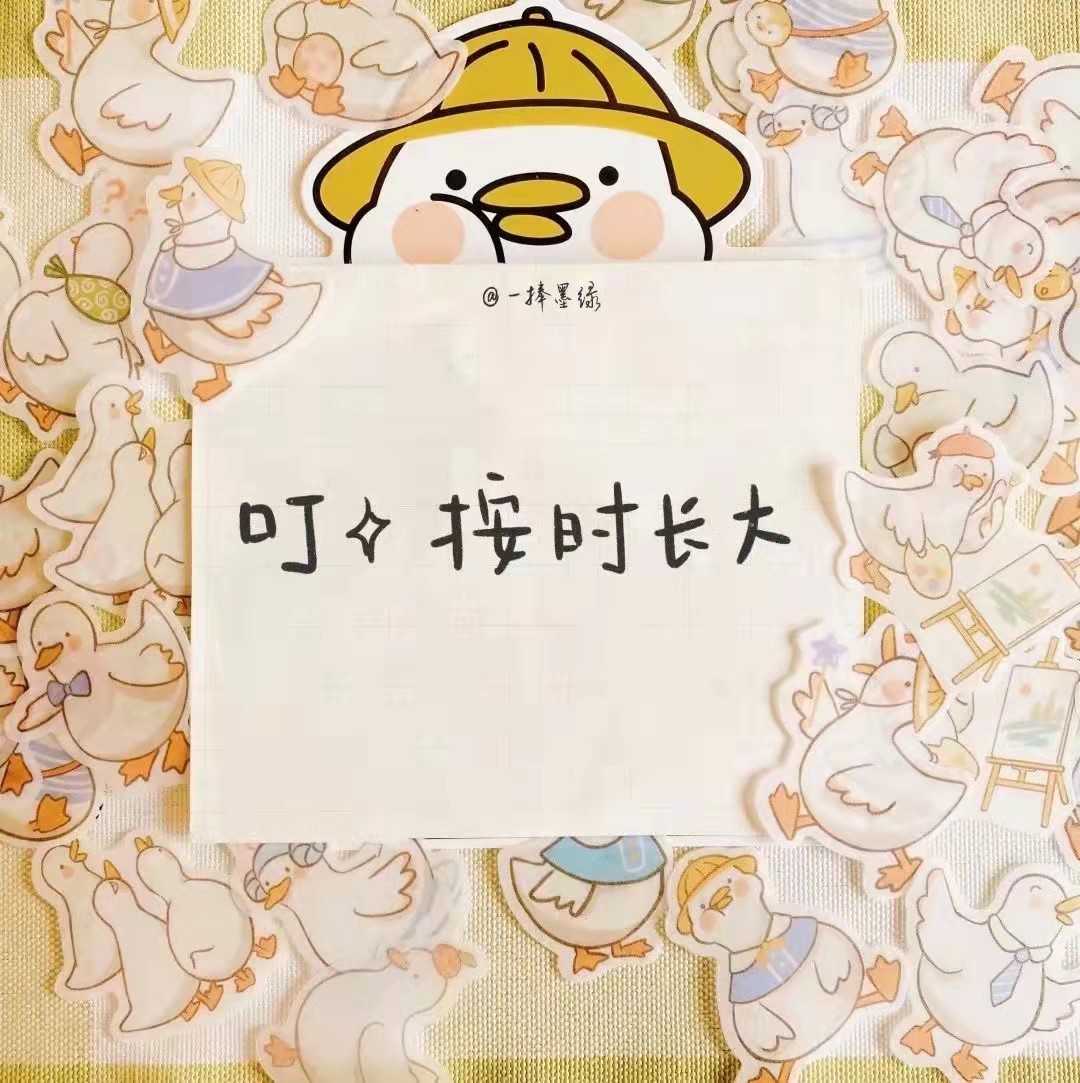 @一捧墨绿
叮✧按时长大